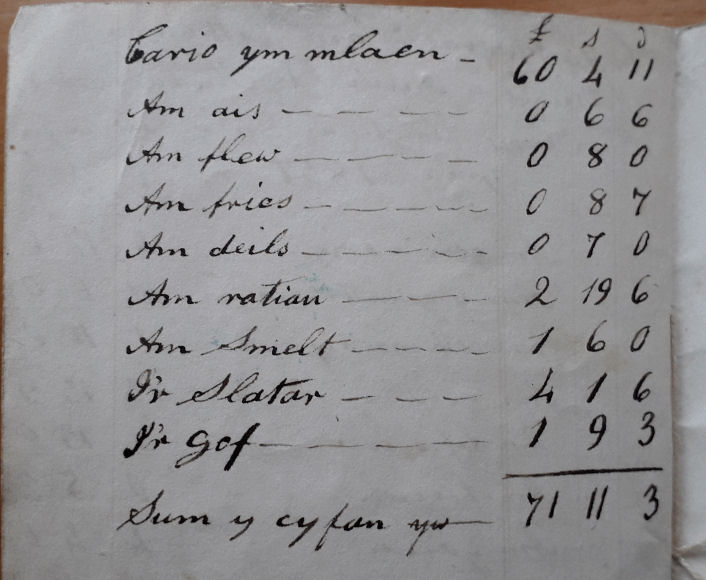 £ s d
Cario ym mlaen - 60 4 11
Am ais - - - - 0 6 6
Am flew - - - - 0 8 0
Am frics - - - - 0 8 7
Am deils - - - - 0 7 0
Am ratian - - - - 2 19 6
Am Smelt - - - - 1 6 0
I'r Slatar - - - 4 1 6
I'r Gof - - - - 1 9 3
Sum y cyfan yw - 71 11 3